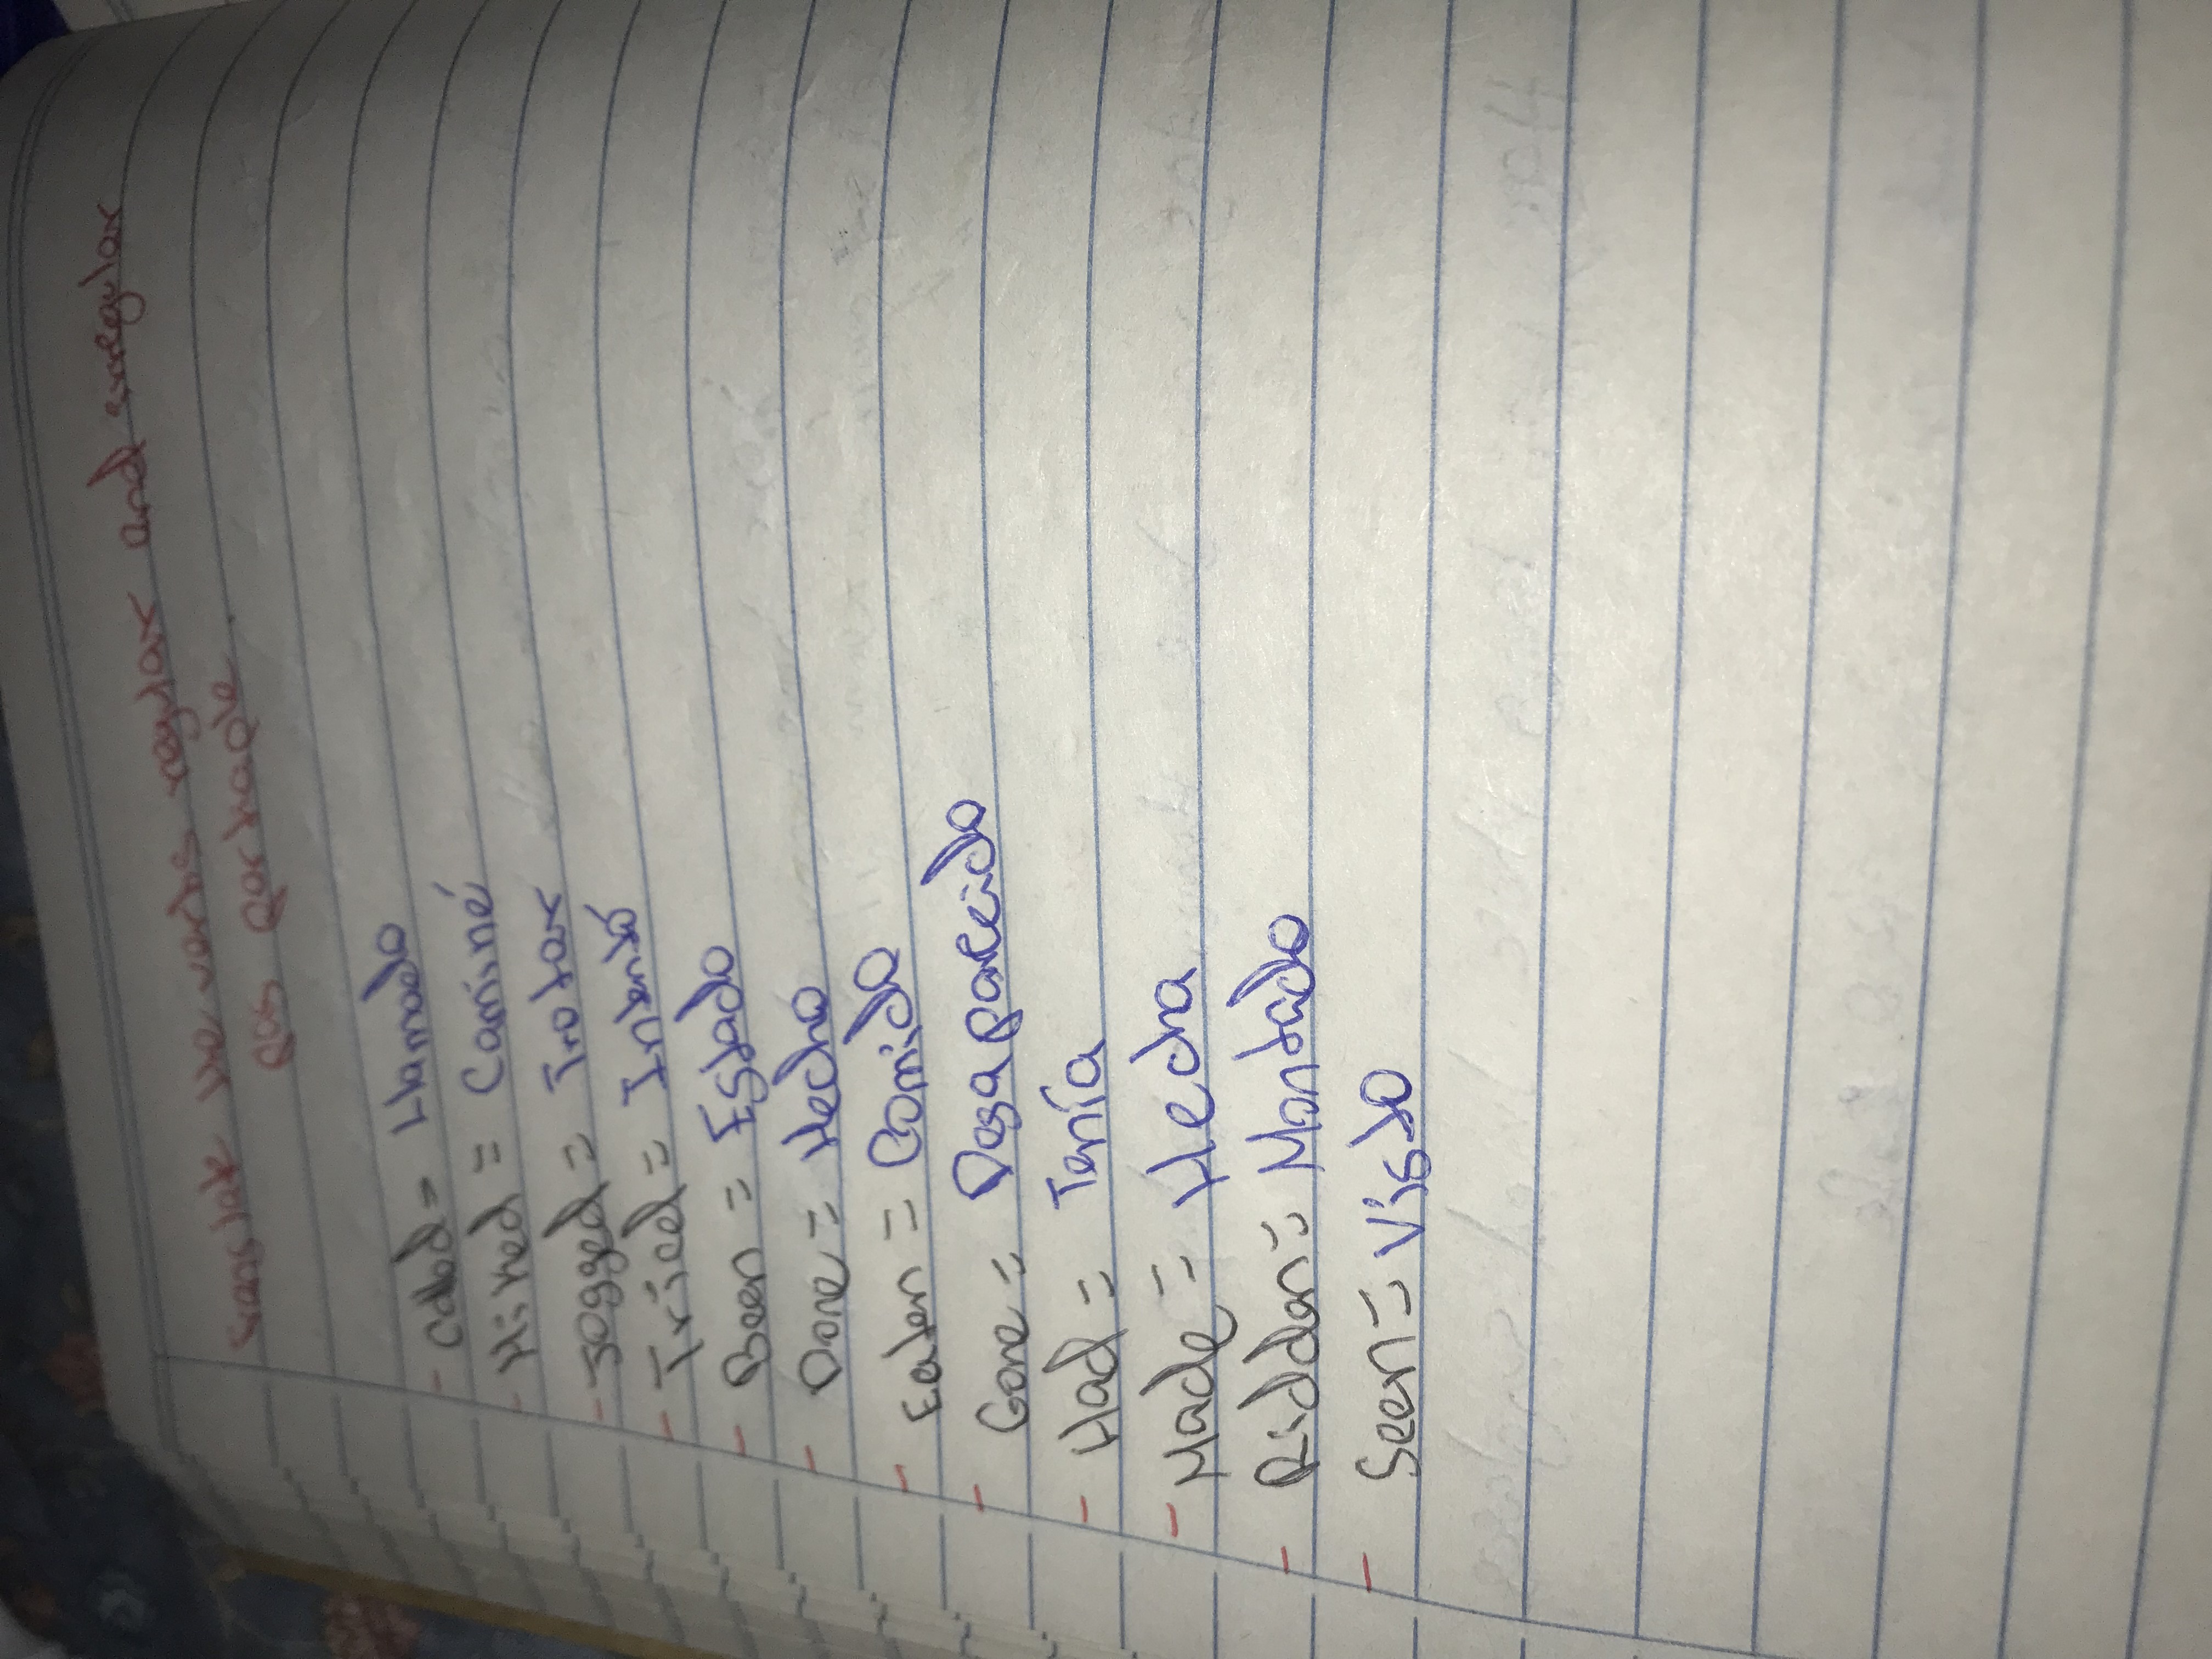 translate the verbs regular and irregular
pas participle
- Called = Llamado
- Hiked = Caminé
- Jogged = Trotar
- Tried = Intentó
- Been = Estado
- Done = Hecho
- Eaten = Comido
- Gone = Desaparecido
- Had = Tenía
- Made = Hecha
- Ridden = Montado
- Seen = Visto